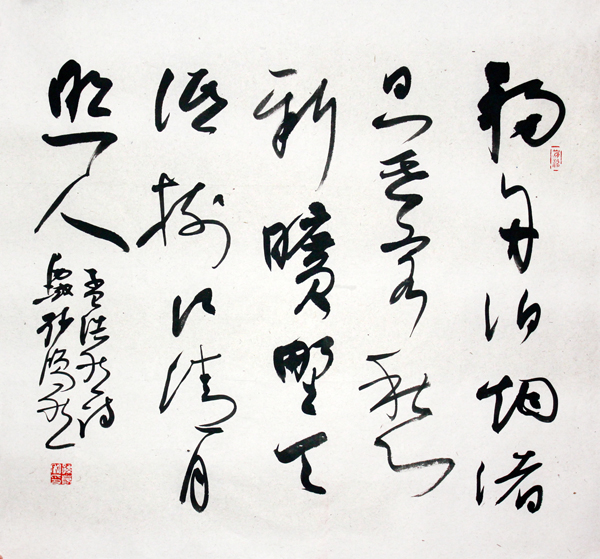 移舟泊烟渚
日暮客愁
新曠野天
低树江清月
照人
孟浩然诗